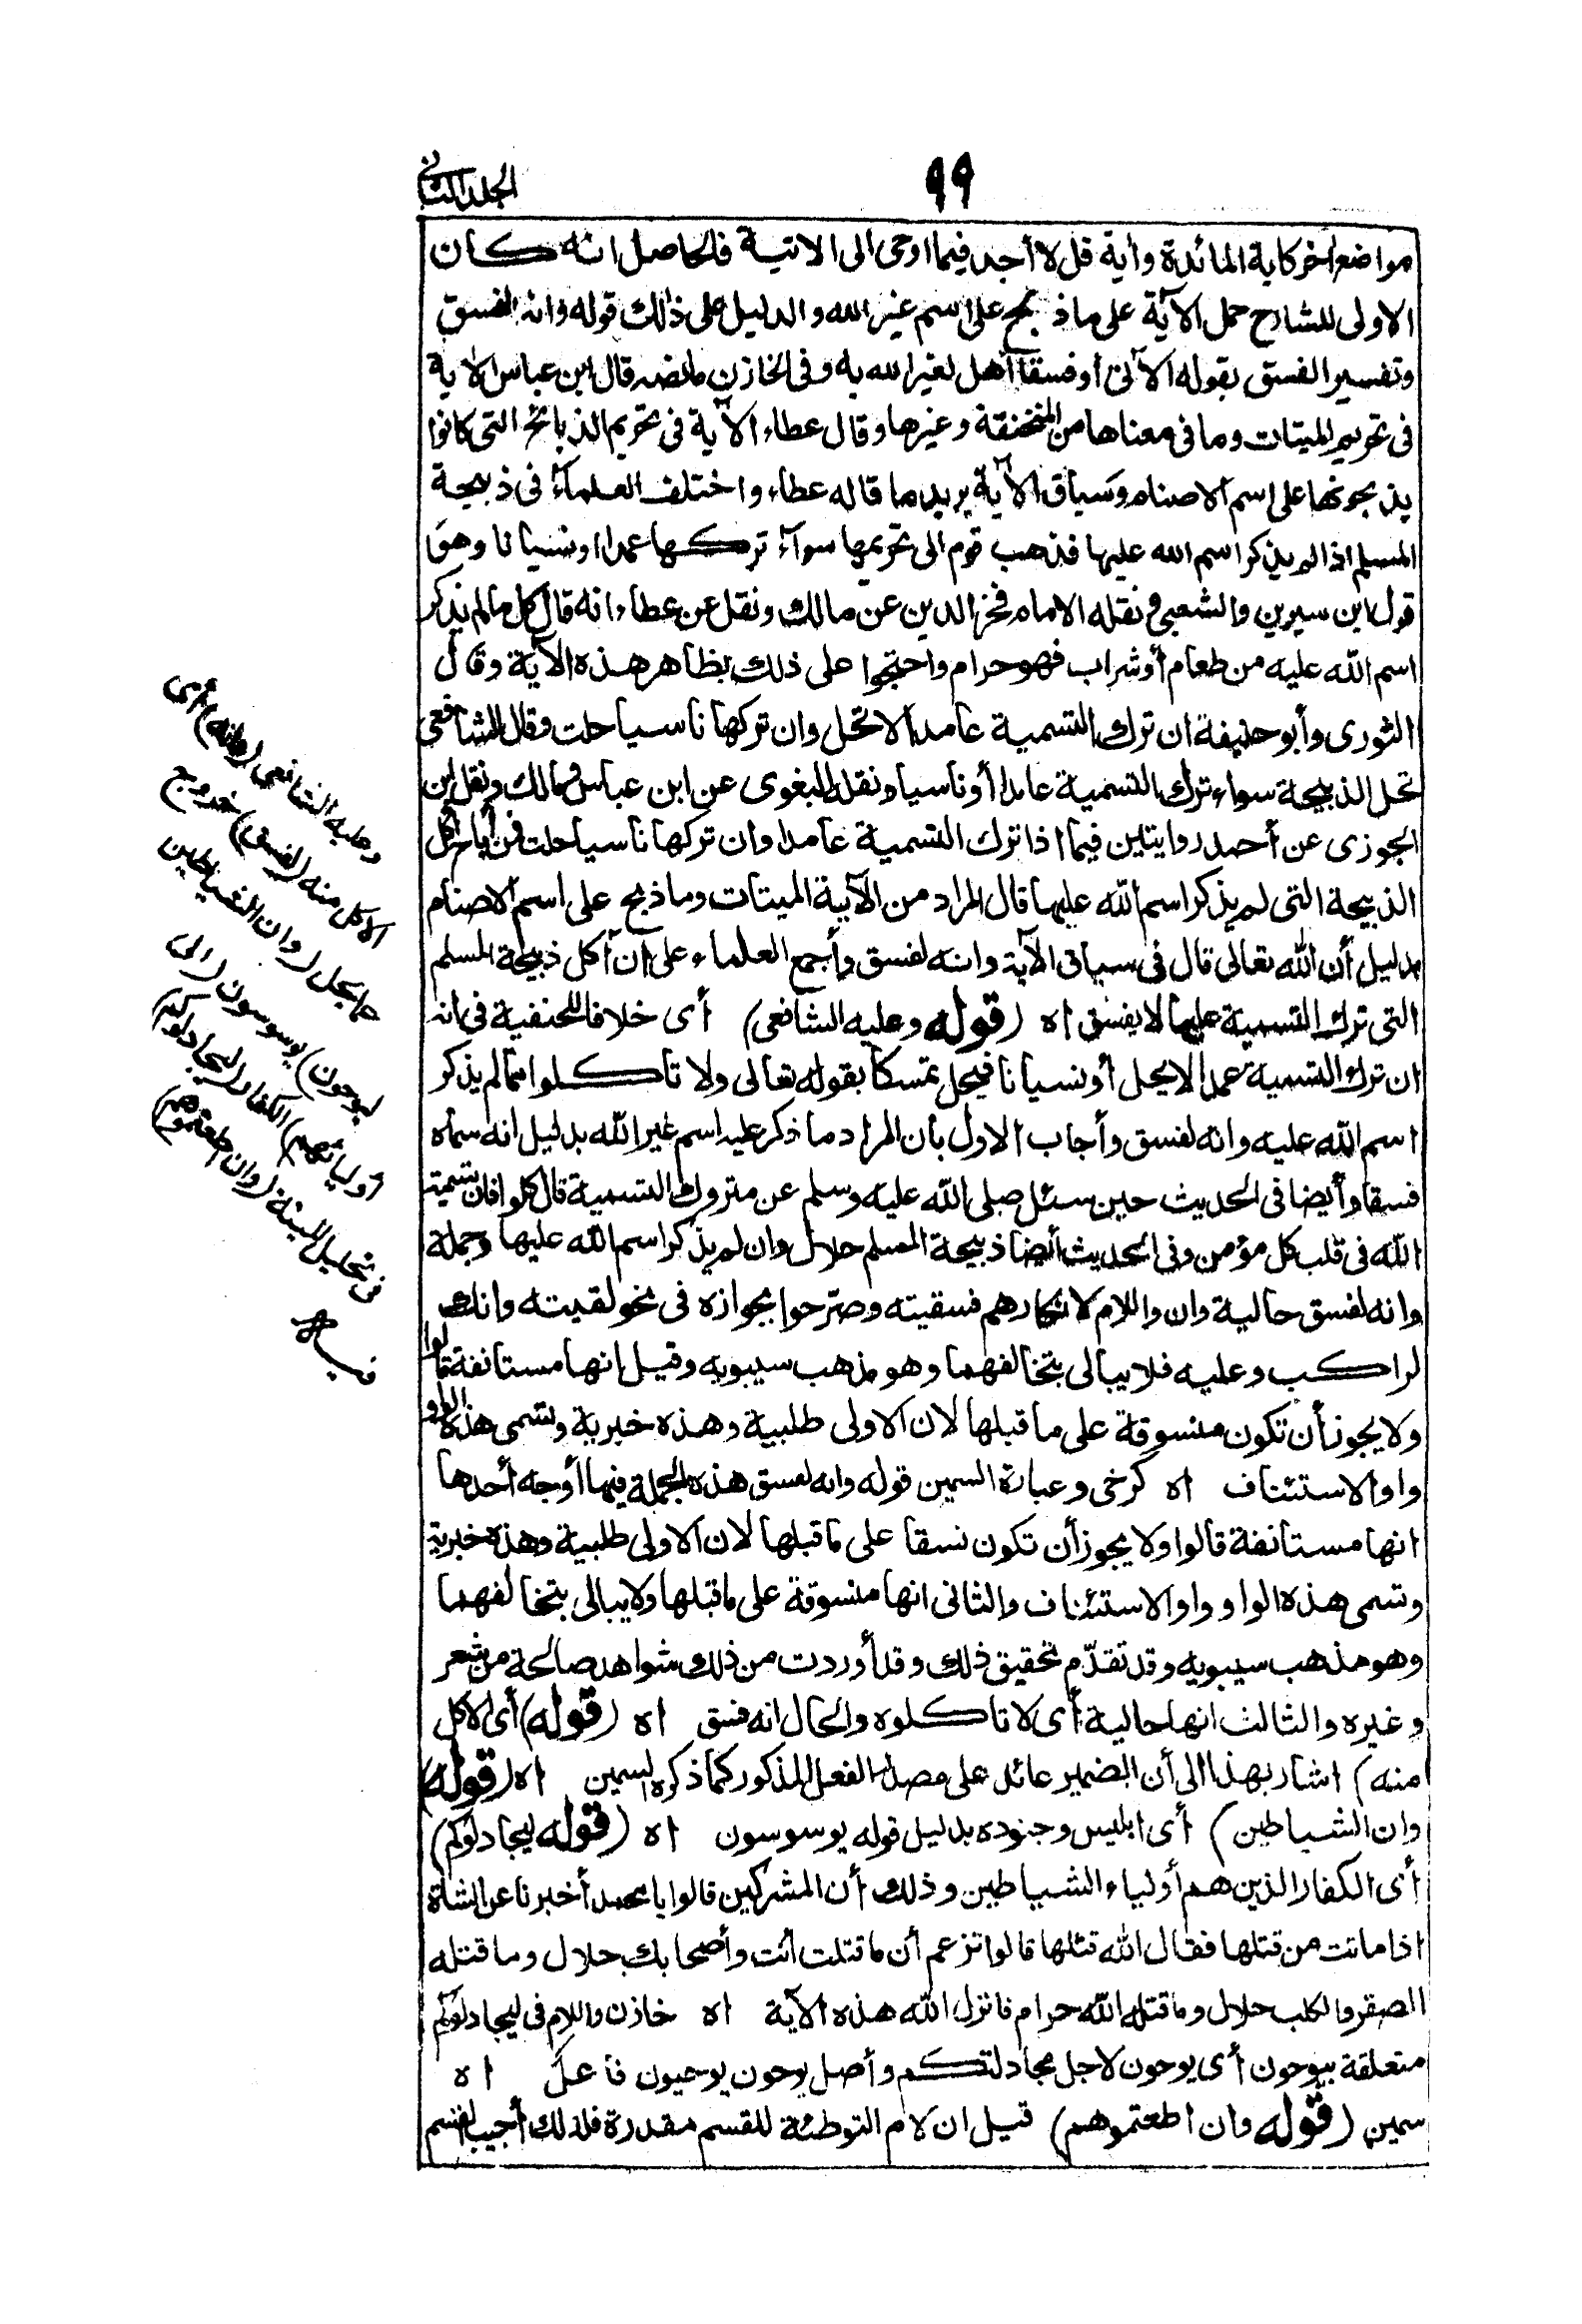 ٩٩
الجلد الثاني
مواضع أخر كاية المائدة وأية قل لا أجد فيما اوحى الى الاتية فالحاصل انه كان
الاولى للشارح حمل الآية على ما ذبح على اسم غير الله والدليل على ذالك قوله وانه لفسق
وتفسير الفسق بقوله الآتى أو فسقا أهل لغير الله به وفى الخازن ما نصه قال ابن عباس الآية
فى تحريم الميتات وما فى معناها من المنخنقة وغيرها وقال عطاء الآية فى تحريم الذبائح التى كانوا
يذبحونها على اسم الاصنام وسياق الآية يريد ما قاله عطاء واختلف العلمآء فى ذبيحة
المسلم اذا لم يذكر اسم الله عليها فذهب قوم الى تحريمها سوآء تركها عمدا اونسيانا وهو
قول ابن سيرين والشعبى ونقله الامام فخر الدين عن مالك ونقل عن عطاء انه قال كل ما لم يذكر
اسم الله عليه من طعام أو شراب فهو حرام واحتجوا على ذلك بظاهر هذه الآية وقال
الثورى وأبو حنيفة ان ترك التسمية عامدا لا تحل وان تركها ناسيا حلت وقال الشافعى
تحل الذبيحة سواء ترك التسمية عامدا أو ناسيا ونقله البغوى عن ابن عباس ومالك ونقل ابن
الجوزى عن أحمد روايتاين فيما اذا ترك التسمية عامدا وان تركها ناسيا حلت فمن أباح أكل
الذبيحة التى لم يذكر اسم الله عليها قال المراد من الآية الميتات وما ذبح على اسم الاصنام
بدليل أن الله تعالى قال فى سياق الآية وانه لفسق وأجمع العلماء على ان أكل ذبيحة المسلم
التى ترك التسمية عليها لا يفسق اه (قوله وعليه الشافعى) أى خلافا للحنفية فى انه
ان ترك التسمية عمدا لا يحل أو نسيانا فيحل تمسكا بقوله تعالى ولا تاكلوا مما لم يذكر
اسم الله عليه وانه لفسق وأجاب الاول بأن المراد ما ذكر عليه اسم غير الله بدليل انه سماه
فسقا وأيضا فى الحديث حين سئل صلى الله عليه وسلم عن متروك التسمية قال كلوا فان تسمية
الله فى قلب كل مؤمن وفى الحديث أيضا ذبيحة المسلم حلال وان لم يذكر اسم الله عليها وجملة
وانه لفسق حالية وان واللام لانكارهم فسقيته وصرّحوا بجوازه فى نحو لقيته وانك
لراكب وعليه فلا يبالى بتخالفهما وهو مذهب سيبويه وقيل انها مستانفة قالوا
ولا يجوز أن تكون منسوقة على ما قبلها لان الاولى طلبية وهذه خبرية وتسمى هذه الواو
واو الاستئناف اه كرخى وعبارة السمين قوله وانه لفسق هذه الجملة فيها أوجه أحدها
انها مستانفة قالوا ولا يجوز أن تكون نسقا على ما قبلها لان الاولى طلبية وهذه خبرية
وتسمى هذه الواو واو الاستئناف والثانى انها منسوقة على ما قبلها ولا يبالى بتخالفهما
وهو مذهب سيبويه وقد تقدّم تحقيق ذلك وقد أوردت من ذلك شواهد صالحة من شعر
وغيره والثالث انها حالية أى لا تاكلوه والحال انه فسق اه (قوله) أى الاكل
منه) اشار بهذا الى أن الضمير عائد على مصدر الفعل المذكور كما ذكره السمين اه (قوله)
وان الشياطين) أى ابليس وجنوده بدليل قوله يوسوسون اه (قوله ليجادلوكم)
أى الكفار الذين هم أولياء الشياطين وذلك أن المشركين قالوا يا محمد أخبرنا عن الشاة
اذا ماتت من قتلها فقال الله قتلها قالوا تزعم أن ما قتلت أنت وأصحابك حلال وما قتله
الصقر والكلب حلال وما قتله الله حرام فانزل الله هذه الآية اه خازن واللام فى ليجادلوكم
متعلقة بيوحون أى يوحون لاجل مجادلتكم وأصل يوحون يوحيون فأعل اه
سمين (قوله وان اطعتموهم) قيل ان لام التوطئة للقسم مقدرة فلذلك أجيب القسم
وعليه الشافعى (وانه) أى
الاكل منه (لفسق) خروج
عما يحل (وان الشياطين
ليوحون) يوسوسون (الى
أوليائهم) الكفار (ليجادلوكم)
فى تحليل الميتة (وان اطعتموهم)
فيه